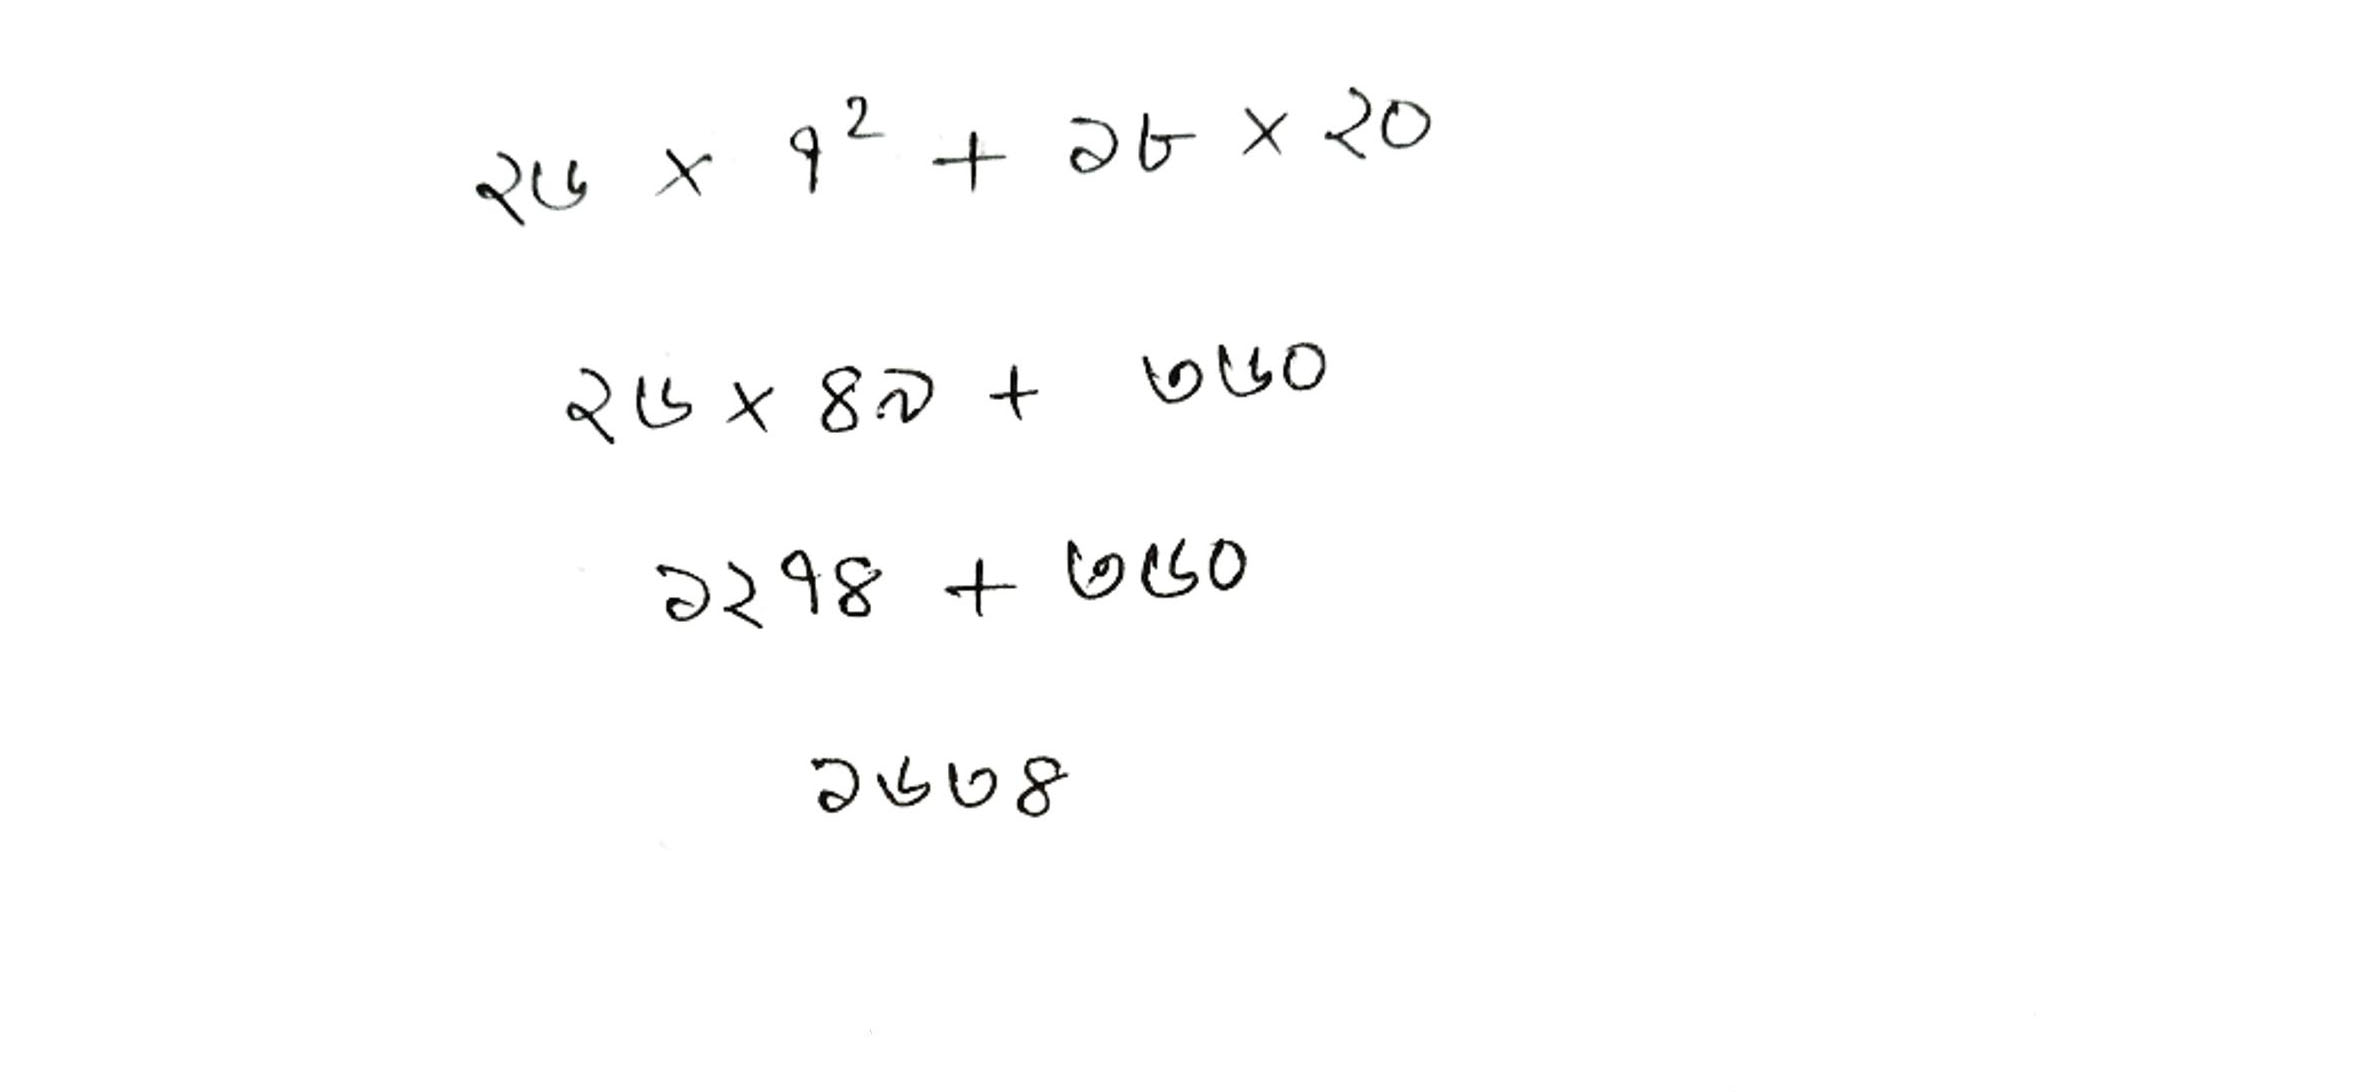 ২৬ × ৭² + ১৮ × ২০
২৬ × ৪৯ + ৩৬০
১২৭৪ + ৩৬০
১৬৩৪